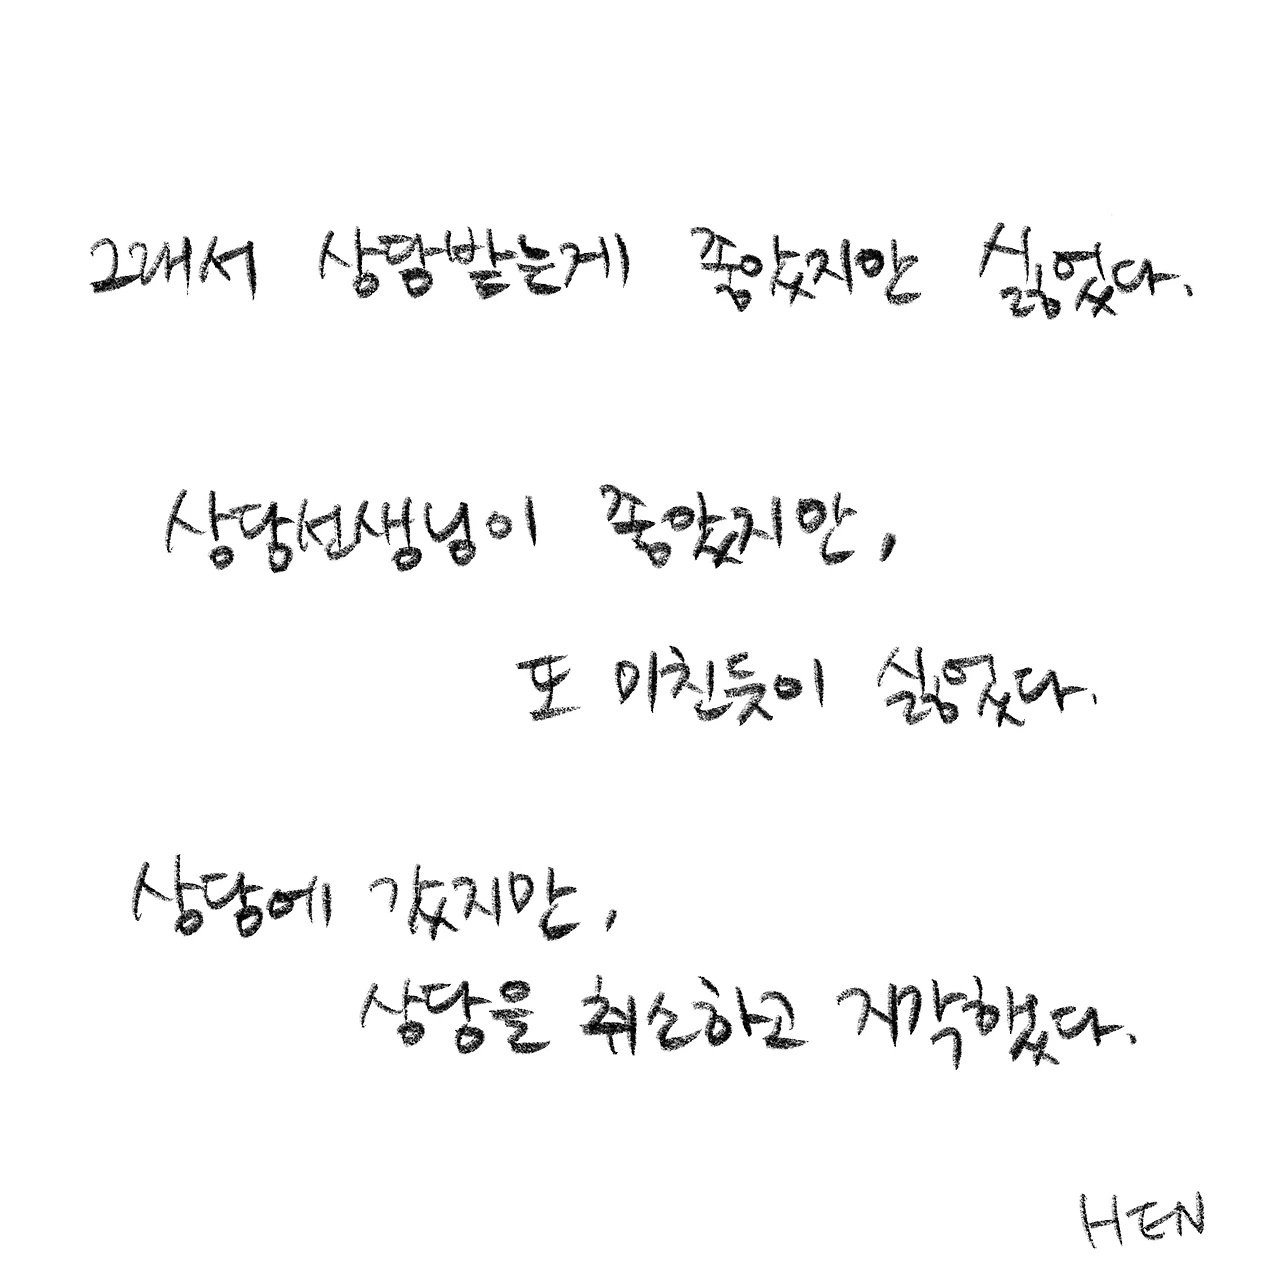 그래서 상담받는게 좋았지만 싫었다.
상담선생님이 좋았지만,
또 미친듯이 싫었다.
상담에 갔지만,
상담을 취소하고 지각했다.
HEN